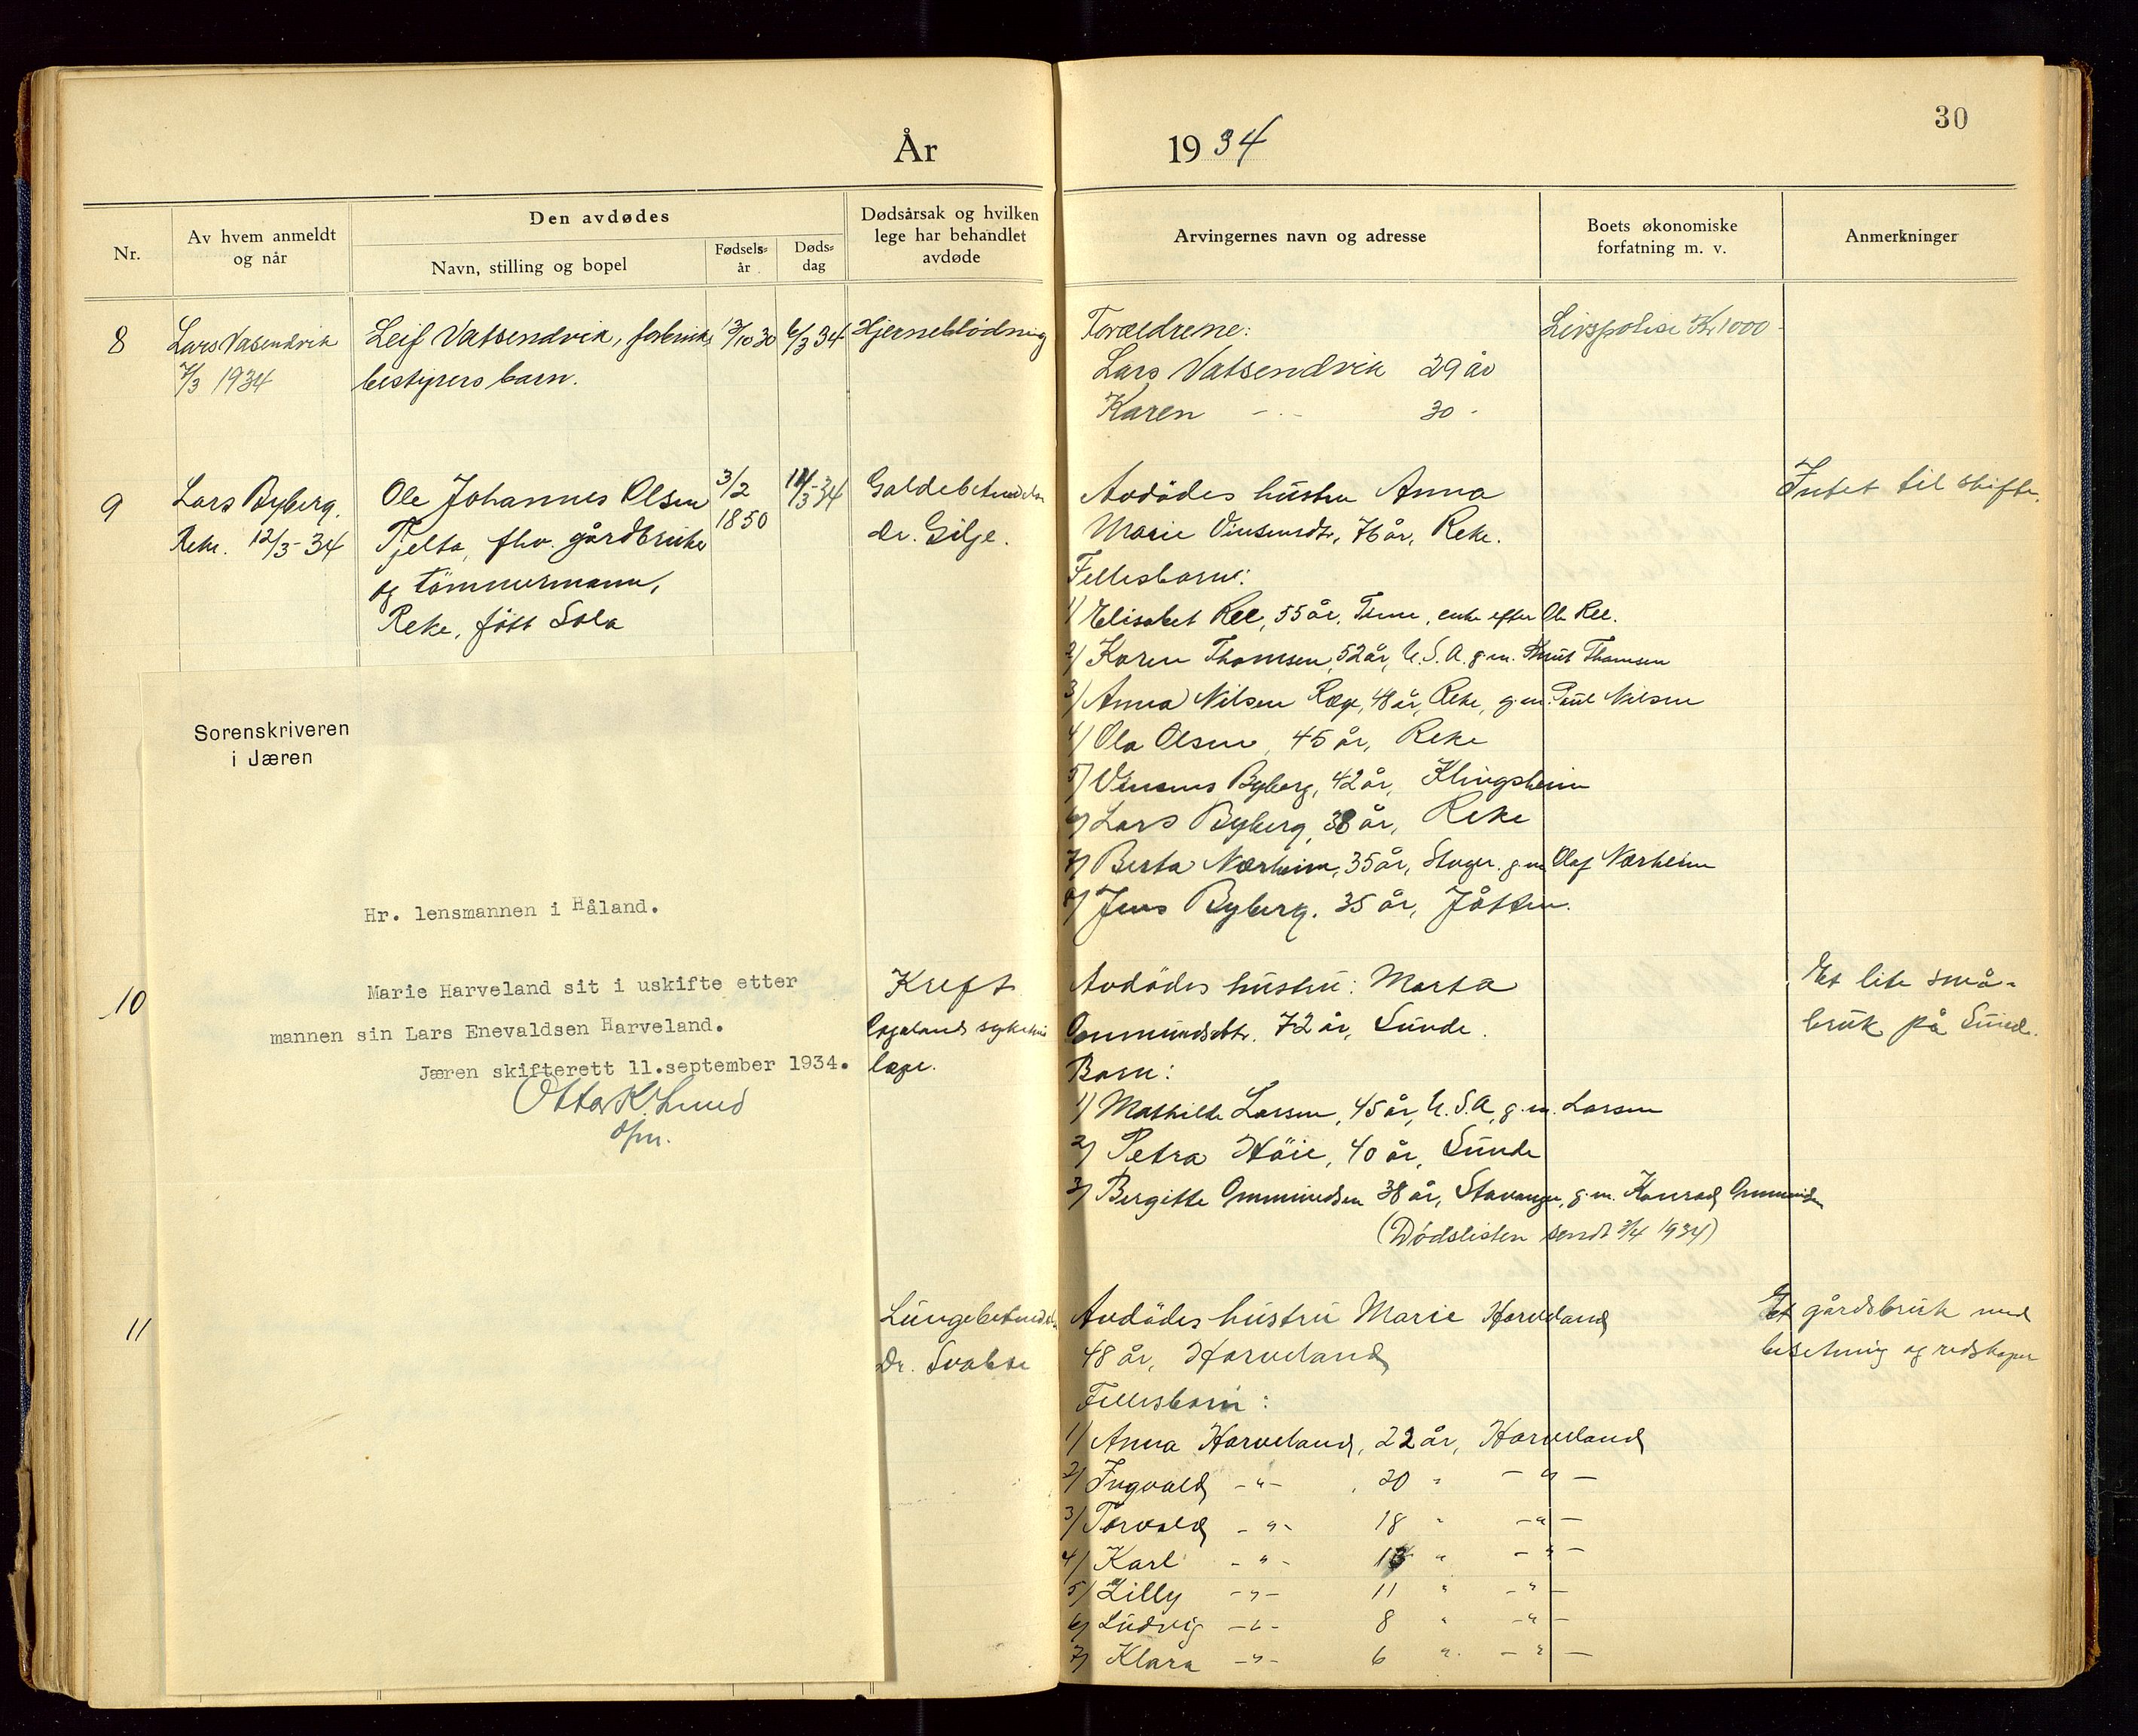 30
År 1934
Nr.
Av hvem anmeldt
og når
Den avdødes
Navn, stilling og bopel
Fødsels-
år
Døds-
dag
Dødsårsak og hvilken
lege har behandlet
avdøde
Arvingernes navn og adresse
Boets økonomiske
forfatning m. v.
Anmerkninger
8
Lars Vasendvik
7/3 1934
Leif Vatsendvik,
bestyrers barn.
3/10 30
6/3 34
Hjerneblödning
Forældrene:
Lars Vatsendvik 29 år
Karen - " - 30 -
Livspolise Kr 1000 -
9
Lars Byberg.
Reke. 12/3-34
Ole Johannes Olsen
Tjelta, fhv. gårdbruker
og tömmermann,
Reke, fött Sola
3/2
1850
Galdebetendelse
Dr. Gilje.
Avdödes hustru Anna
Marie Vinsensdtr, 76 år, Reke.
Fellesbarn:
1) Elisabet Ree, 55 år, Time, enke efter Ole Ree.
2) Karen Thomsen, 52 år, U.S.A. g.m. Knut Thomsen
3) Anna Nilsen Ræge, 48 år, Reke, g.m. Paul Nilsen
4) Ola Olsen, 45 år, Reke
5) Vinsens Byberg, 42 år, Klingsheim
6) Lars Byberg, 38 år, Reke
7) Berta Nærheim, 35 år, Stvgr. g.m. Olaf Nærheim
8) Jens Byberg. 35 år, Jåtten.
Intet til skifte.
Sorenskriveren
i Jæren
Hr. lensmannen i Håland.
Marie Harveland sit i uskifte etter
mannen sin Lars Enevaldsen Harveland.
Jæren skifterett 11.september 1934.
Otto K. Lund
dfm.
10
Kreft
Rogalands sykehus
læge.
Avdödes hustru: Marta
Ommundsdtr. 72 år, Sunde.
Barn:
1) Mathilde Larsen, 45 år, U.S.A, g.m. Larsen
2) Petra Höie, 40 år, Sunde
3) Bergitte Ommundsen 38 år, Stavanger, g.m. Konrad Ommundsen
(Dödslisten sendt 3/4 1934)
Et lite små-
bruk på Sunde.
11
Lungebetendelse
Dr. Svabøe
Avdödes hustru Marie Harveland
48 år, Harveland
Fellesbarn:
1) Anna Harveland, 22 år, Harveland
2) Ingvald - " - , 20 " - " -
3) Torvald - " - 18 " - " -
4) Karl - " - " - " -
5) Lilly - " - 11 " - " -
6) Ludvig - " - 8 " - " -
7) Klara - " - 6 " - " -
Et gårdsbruk med
besetning og redskaper